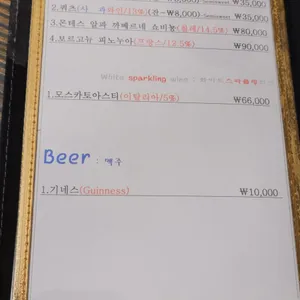 2.쿼츠/사 (잔-₩8,000) ₩35,000
3.몬테스 알파 까베르네 쇼비뇽(칠레/14.5%) ₩80,000
4.모르고뉴 피노누아(프랑스/12.5%) ₩90,000
White sparkling wine : 화이트 스파클링
1.모스카토아스티(이탈리아/5%) ₩66,000
Beer : 맥주
1.기네스(Guinness) ₩10,000